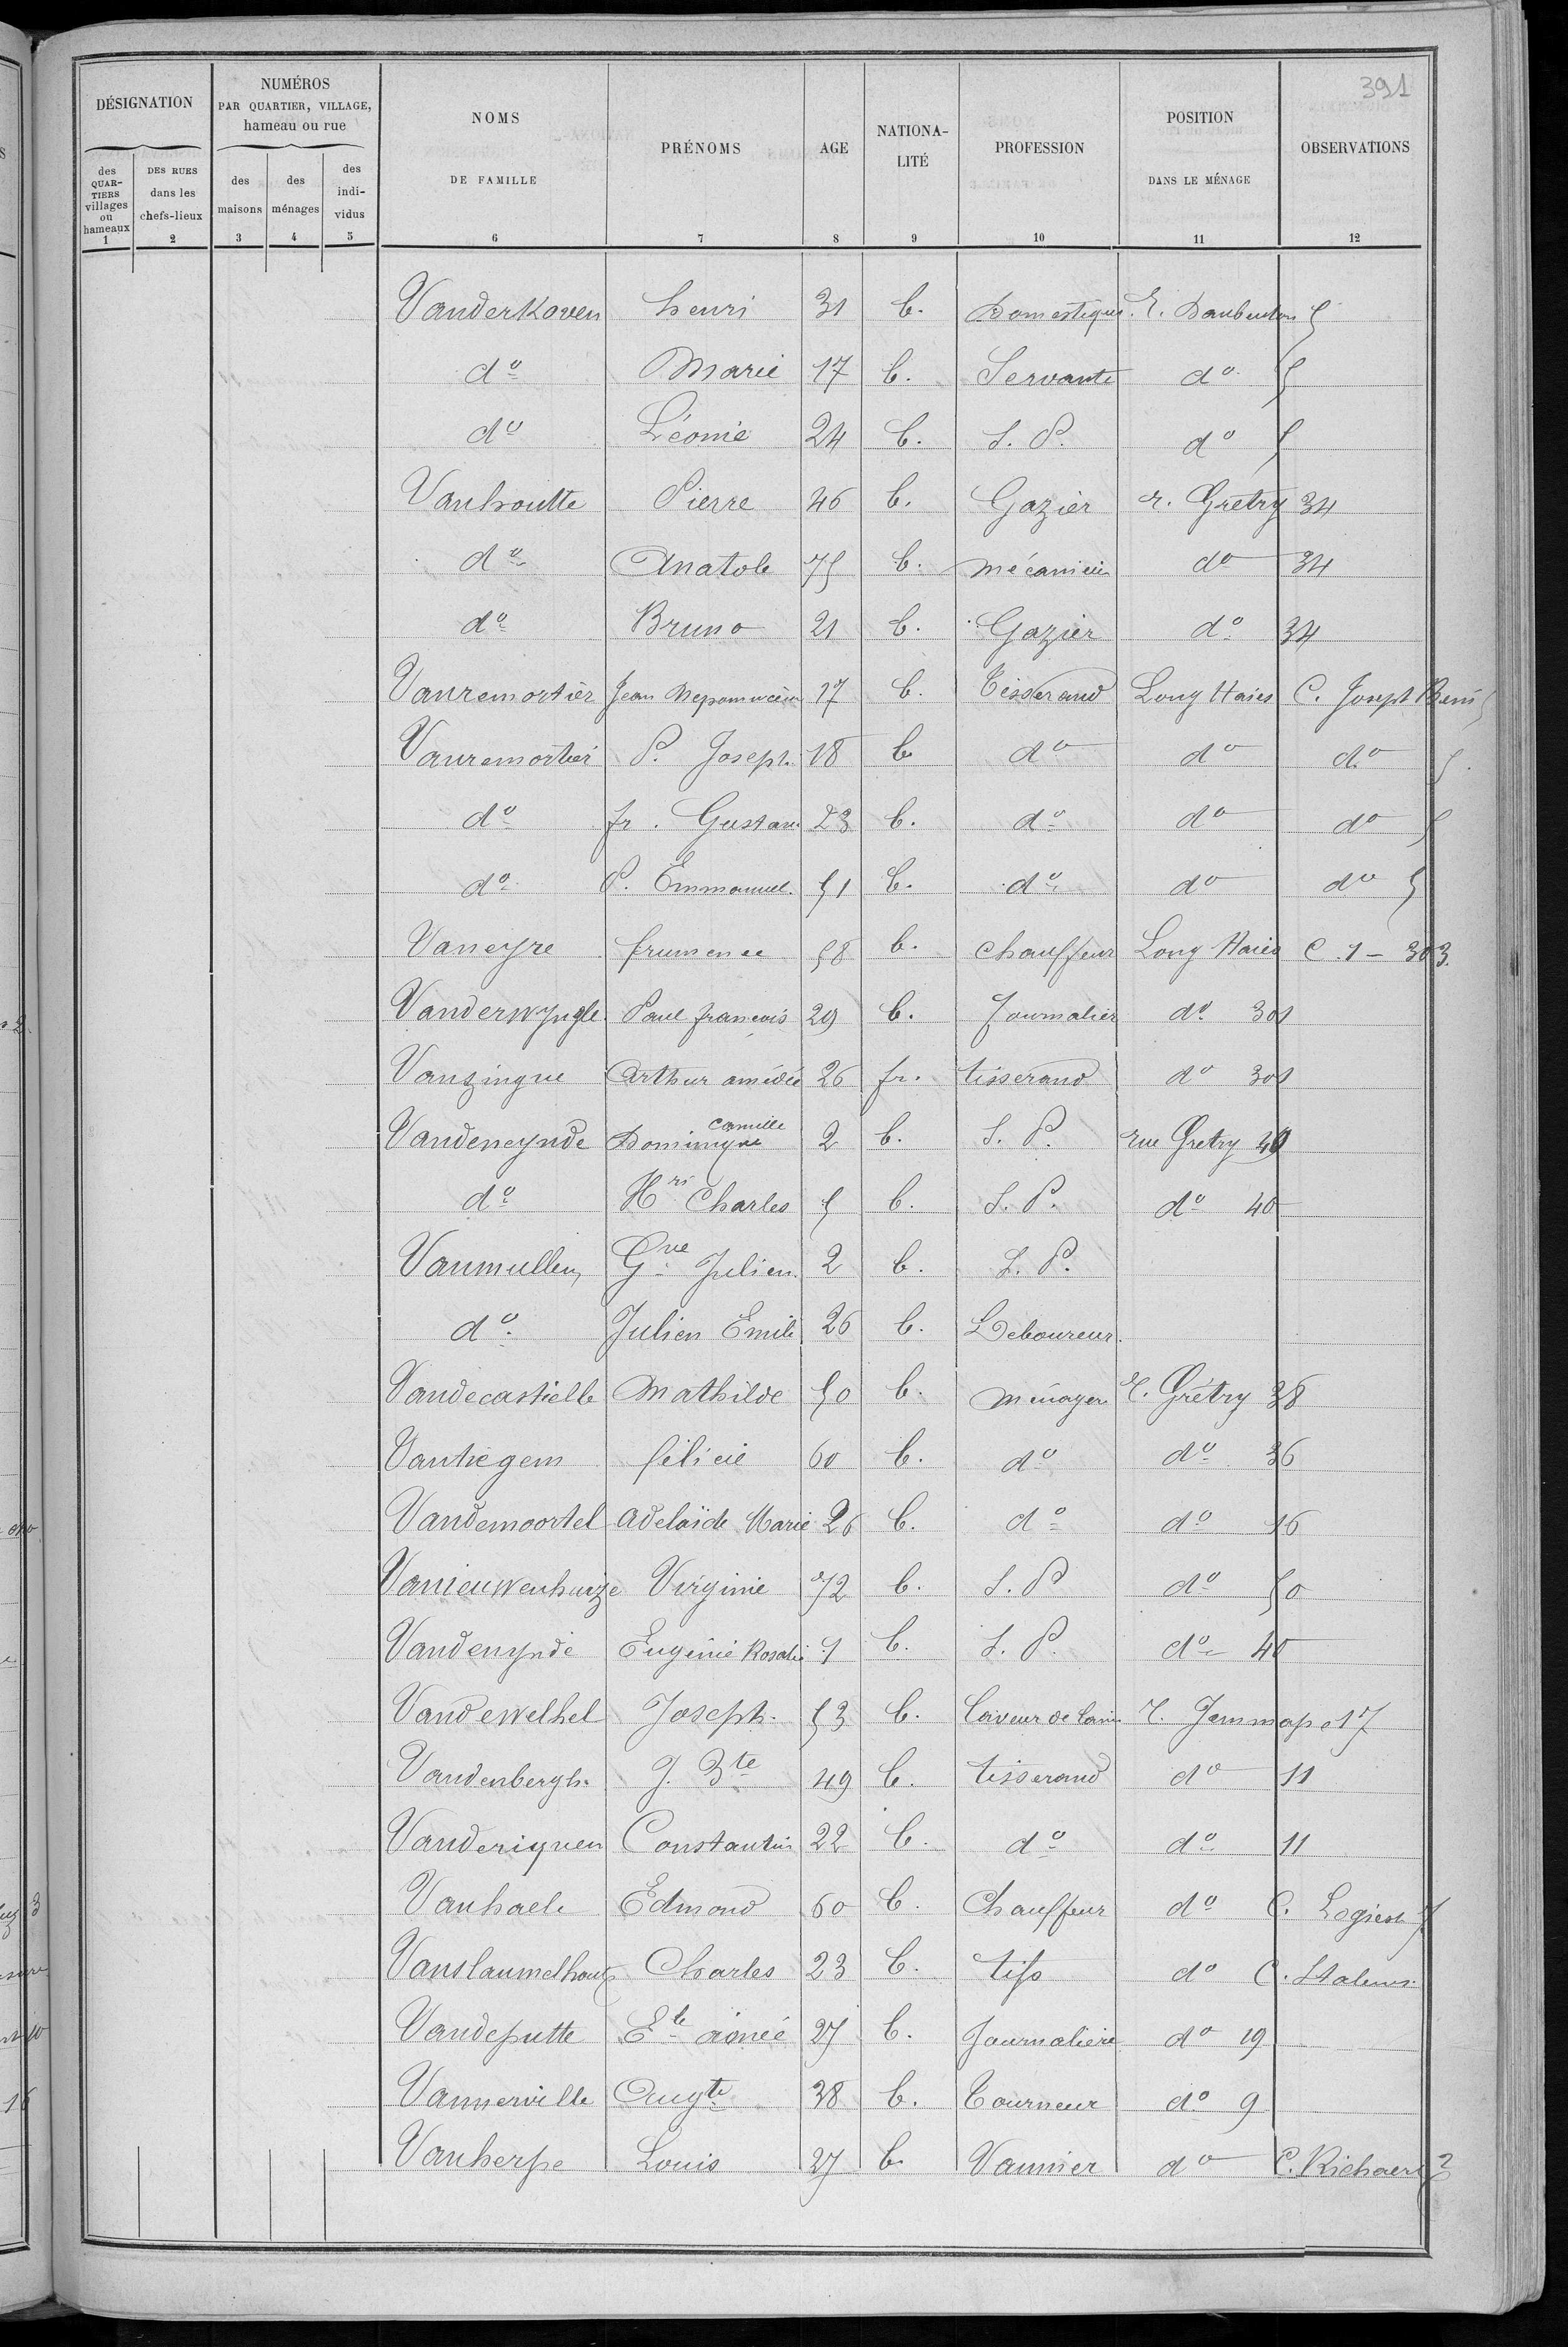 391
DÉSIGNATION
NUMÉROS PAR QUARTIER, VILLAGE, hameau ou rue
NOMS DE FAMILLE
PRÉNOMS
AGE
NATIONA-LITÉ
PROFESSION
POSITION DANS LE MÉNAGE
OBSERVATIONS
des QUAR-TIERS villages ou hameaux
DES RUES dans les chefs-lieux
des maisons
des ménages
des indi-vidus
1 2 3 4 5 6 7 8 9 10 11 12
Vanderkoven henri 31 b. Domestique r. Daubenton 5
do Marie 17 b. Servante do 5
do Léonie 24 b. S. P. do 5
Vanhoutte Pierre 46 b. Gazier r. Grétry 34
do Anatole 75 b. mécanicien do 34
do Bruno 21 b. Gazier do 34
Vanremortier Jean Nepomucène 17 b. Tisserand Long Haies C. Joseph 5
Vanremortier P. Joseph 18 b do do do 5
do fr. Gustave 23 b. do do do 5
do P. Emmanuel 51 b. do do do 5
Vaneyre frumence 58 b. chauffeur Long Haies C. 1 - 303
Vanderwyngle Paul francois 29 b. Journalier do 301
Vanzingue Arthur amédée 26 fr. tisserand do 301
Vandeneynde Dominique Camille 2 b. S. P. rue Gretry 40
do Hri Charles 5 b. S. P. do 40
Vanmullen Gve Julien 2 b. S. P.
do Julien Emile 26 b. Deboureur
Vandecastielle Mathilde 50 b. ménagere r. Grétry 38
Vantiegem félicie 60 b. do do 36
Vandemoortel Adelaïde Marie 26 b. do do 16
Vanieuwenhuize Virginie 72 b. S. P do 50
Vandenynde Eugénie Rosalie 7 b. S. P. do 40
Vandewelhel Joseph 53 b. laveur de laine r. Jemmape 17
Vandenberghe J. Bte 49 b. tisserand do 11
Vanderiquen Constantin 22 b. do do 11
Vanhaele Edmond 60 b. Chauffeur do C. Logiest 7
Vanslaumelhoutz Charles 23 b. tiss do C.
Vandeputte Ele aimée 27 b. Journaliere do 19
Vannerville Augte 38 b. Tourneur do 9
Vanherpe Louis 27 b. Vannier do C. Richaers 2